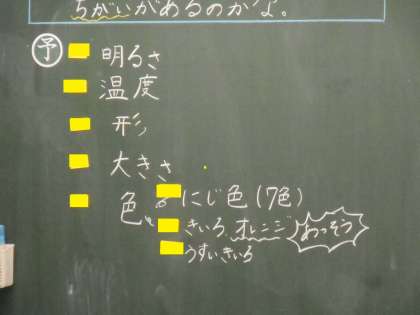 ちがいがあるのかな。
予 明るさ
温度
形
大きさ
色 にじ色(7色)
きいろ、オレンジ あつそう
うすいきいろ